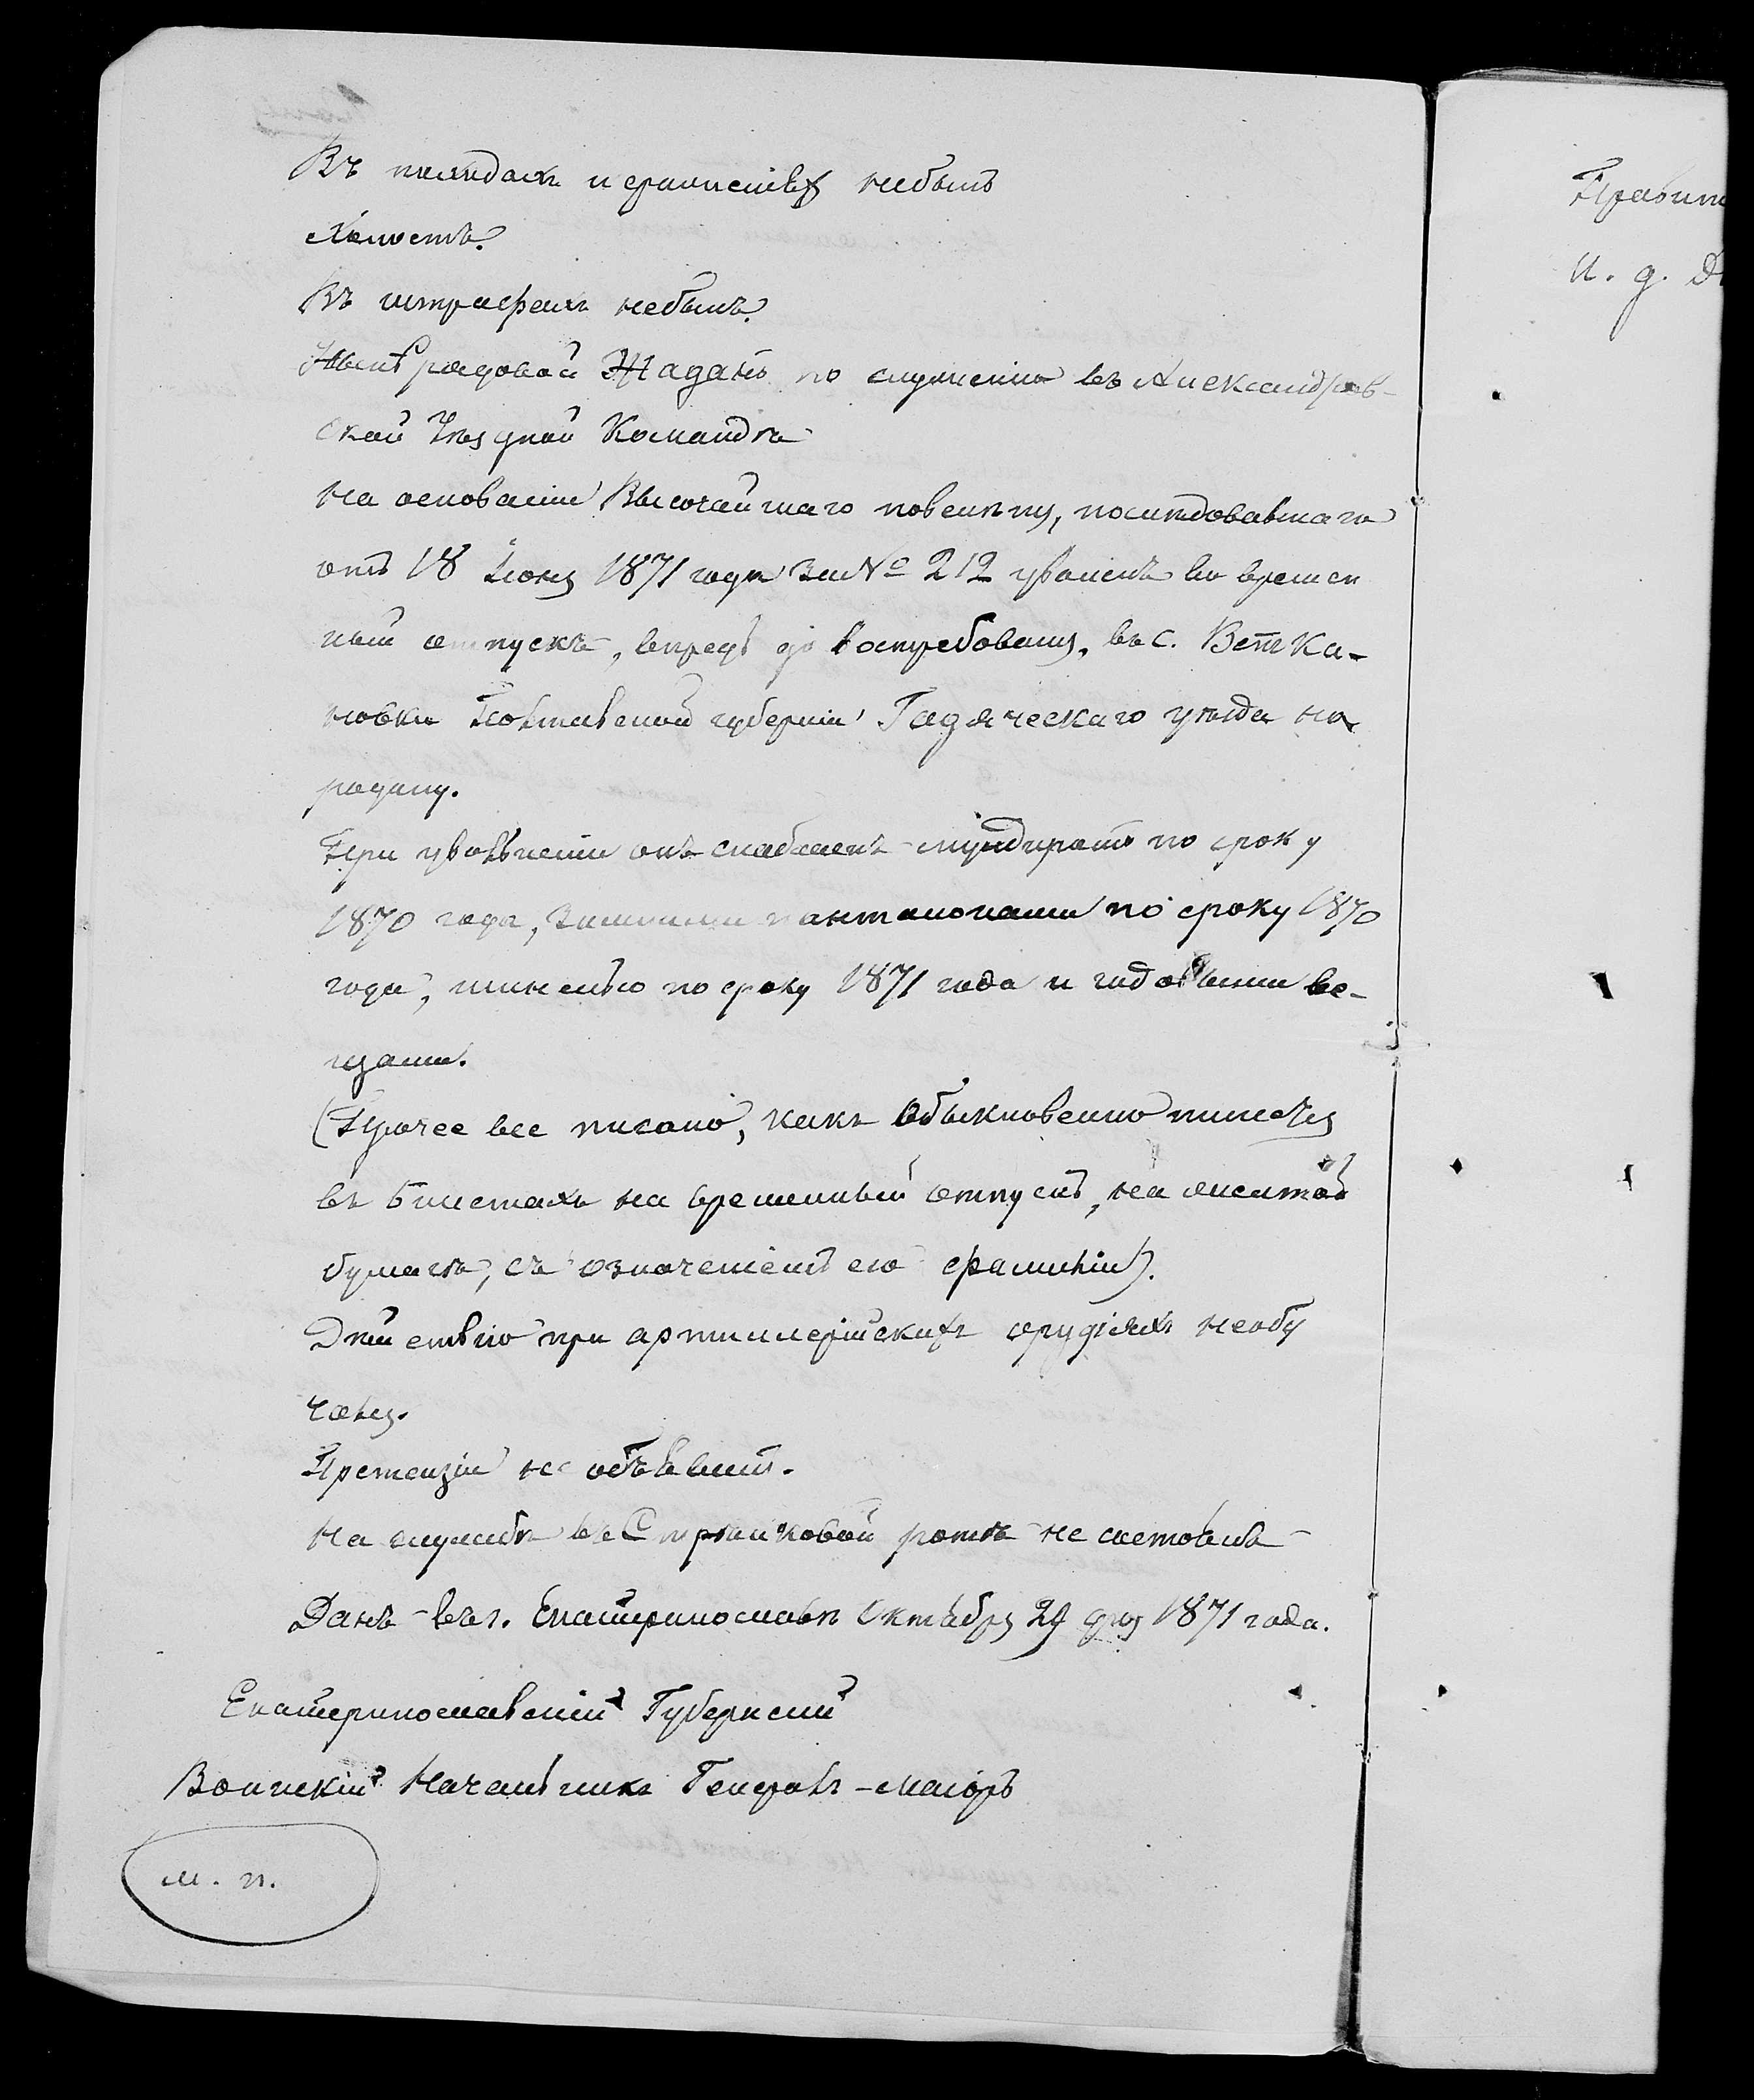 Въ походахъ и сраженіях небылъ
Холостъ.
Въ штрафахъ небылъ.
Нынѣ рядовой Жаданъ по служенію въ Александров-
ской Уѣздной Командѣ
На основаніи Высочайшаго повелѣнія, послѣдовавшаго
отъ 18 Іюня 1871 года за № 212 уволенъ во времен
ный отпускъ, впредь до востребованія, въ с.
Полтавской губерніи Гадяческаго уѣзда на
родину.
При увольненіи онъ снабженъ мундиромъ по сроку
1870 года, зимними панталонами по сроку 1870
года, шинелью по сроку 1871 года и годовыми ве-
щами.
(Прочее все писано, какъ обыкновенно пишется
въ билетахъ на временный отпускъ, на желтой
бумагѣ, съ означеніемъ его фамиліи).
Дѣйствію при артиллерійскихъ орудіяхъ необу
чался.
Претензіи не объявилъ.
На службѣ въ Стрѣлковой ротѣ не состоялъ
Данъ въ г. Екатеринославѣ Октября 29 дня 1871 года.
Екатеринославскій Губернскій
Воинскій Начальникъ Генералъ-Маіоръ
м. п.
И. д.